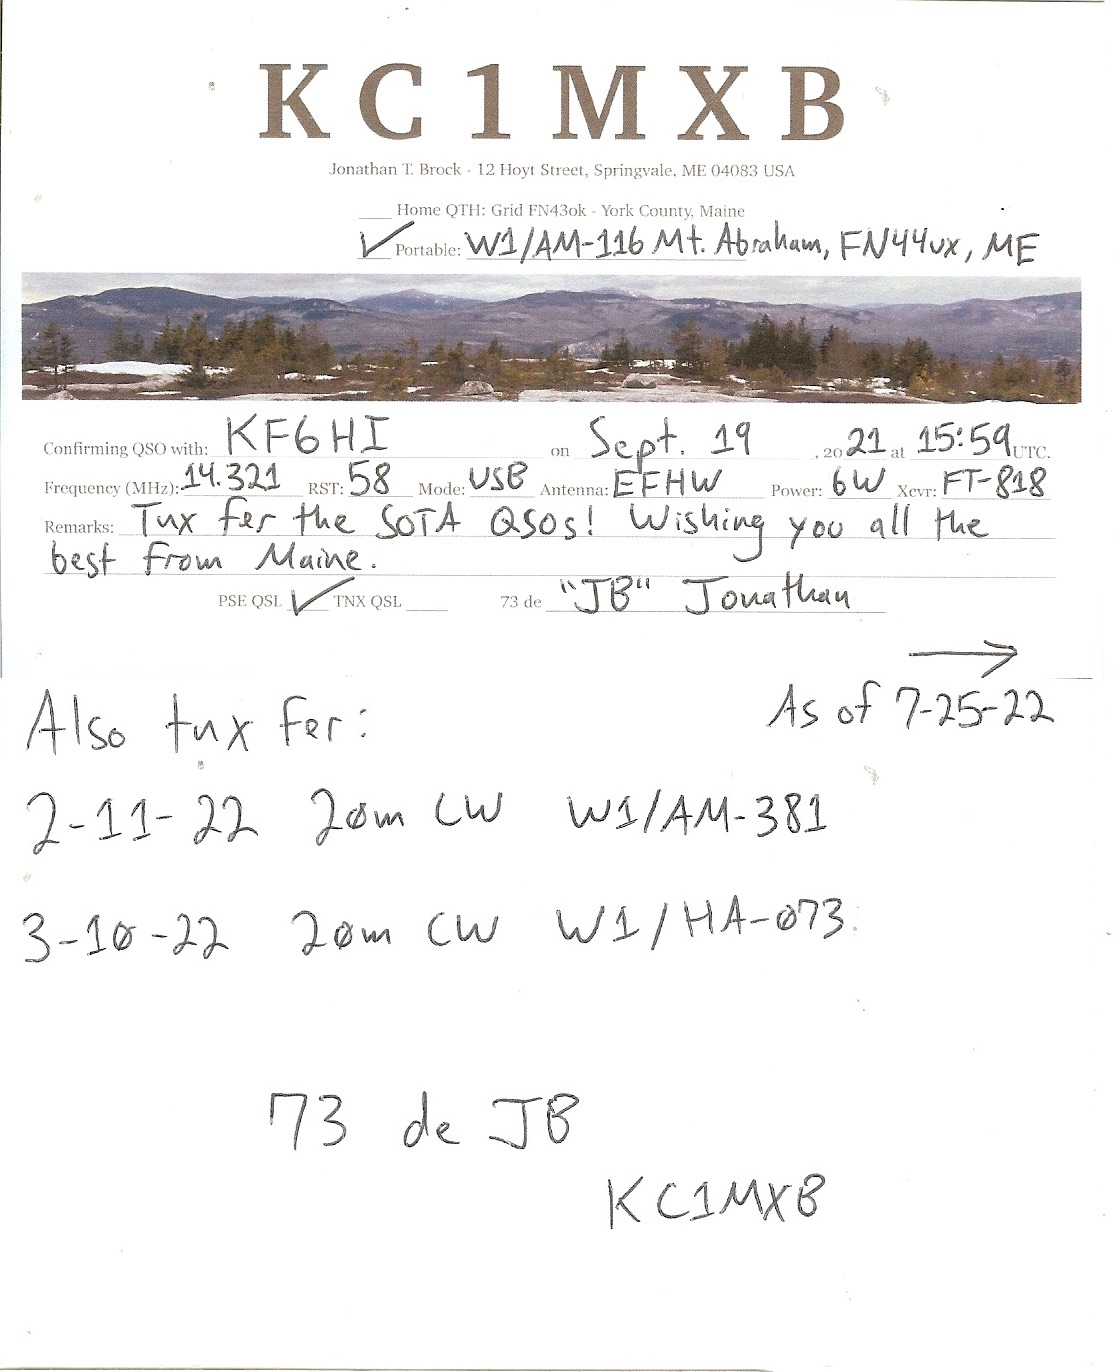 KC1MXB
Jonathan T. Brock - 12 Hoyt Street, Springvale, ME 04083 USA
___ Home QTH: Grid FN43ok - York County, Maine
✓ Portable: W1/AM-116 Mt. Abraham, FN44ux, ME
Confirming QSO with: KF6HI on Sept. 19, 2021 at 15:59 UTC.
Frequency (MHz): 14.321 RST: 58 Mode: USB Antenna: EFHW Power: 6W Xcvr: FT-818
Remarks: Tnx fer the SOTA QSOs! Wishing you all the
best from Maine.
PSE QSL ✓ TNX QSL ___ 73 de "JB" Jonathan
→
Also tnx fer: As of 7-25-22
2-11-22 20m CW W1/AM-381
3-10-22 20m CW W1/HA-073
73 de JB
KC1MXB